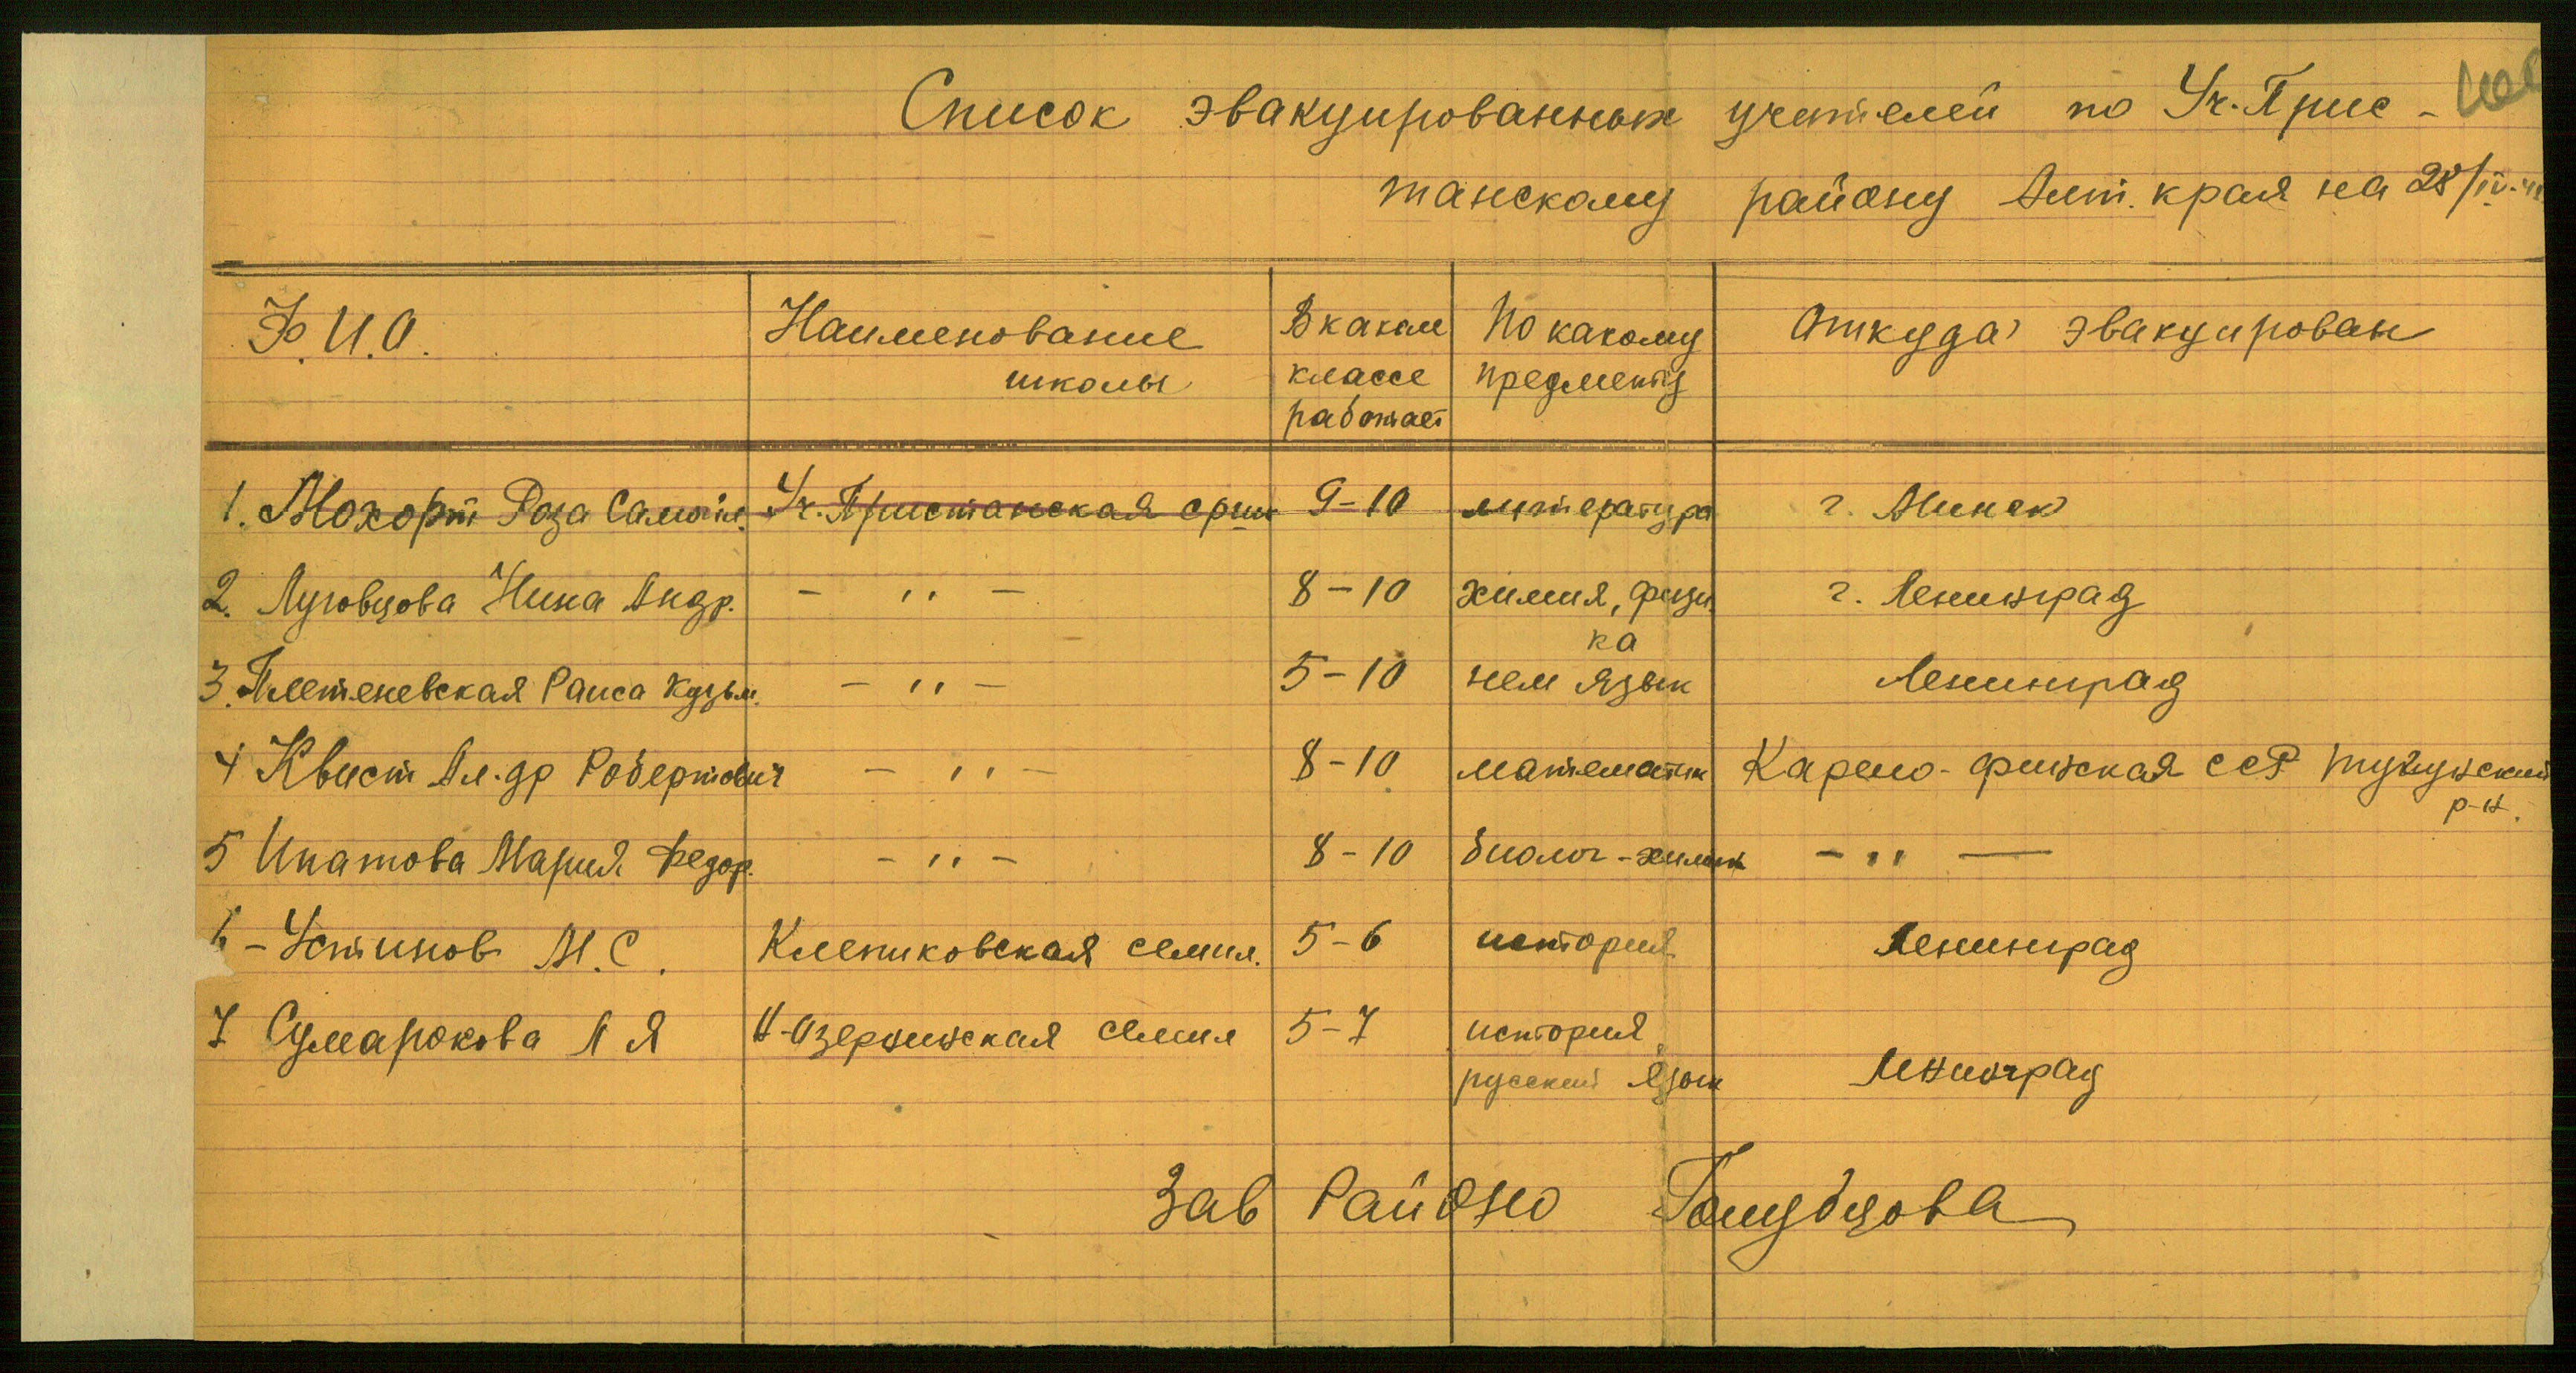 Список эвакуированных учителей по Уч. Прис-
танскому району Алт. края на 28/IV.
Ф.И.О. Наименование школы В каком классе работает По какому предмету Откуда эвакуирован
1. Мохорт Роза Самойл. Уч. Пристанская срш 9-10 литература г. Минск
2. Луговцова Нина Андр. - " - 8-10 химия, физи
ка г. Ленинград
3. Плетеневская Раиса Кузьм. - " - 5-10 нем язык Ленинград
4 Квист Ал-др Робертович - " - 8-10 математик Карело-финская ССР
р-н.
5 Ипатова Мария Федор. - " - 8-10 биолог-химик - " -
6 - Устинов М.С. Клепиковская 5-6 история Ленинград
7 Сумарокова А Я 5-7 история
русский язык Ленинград
Зав РайОНО Голубцова